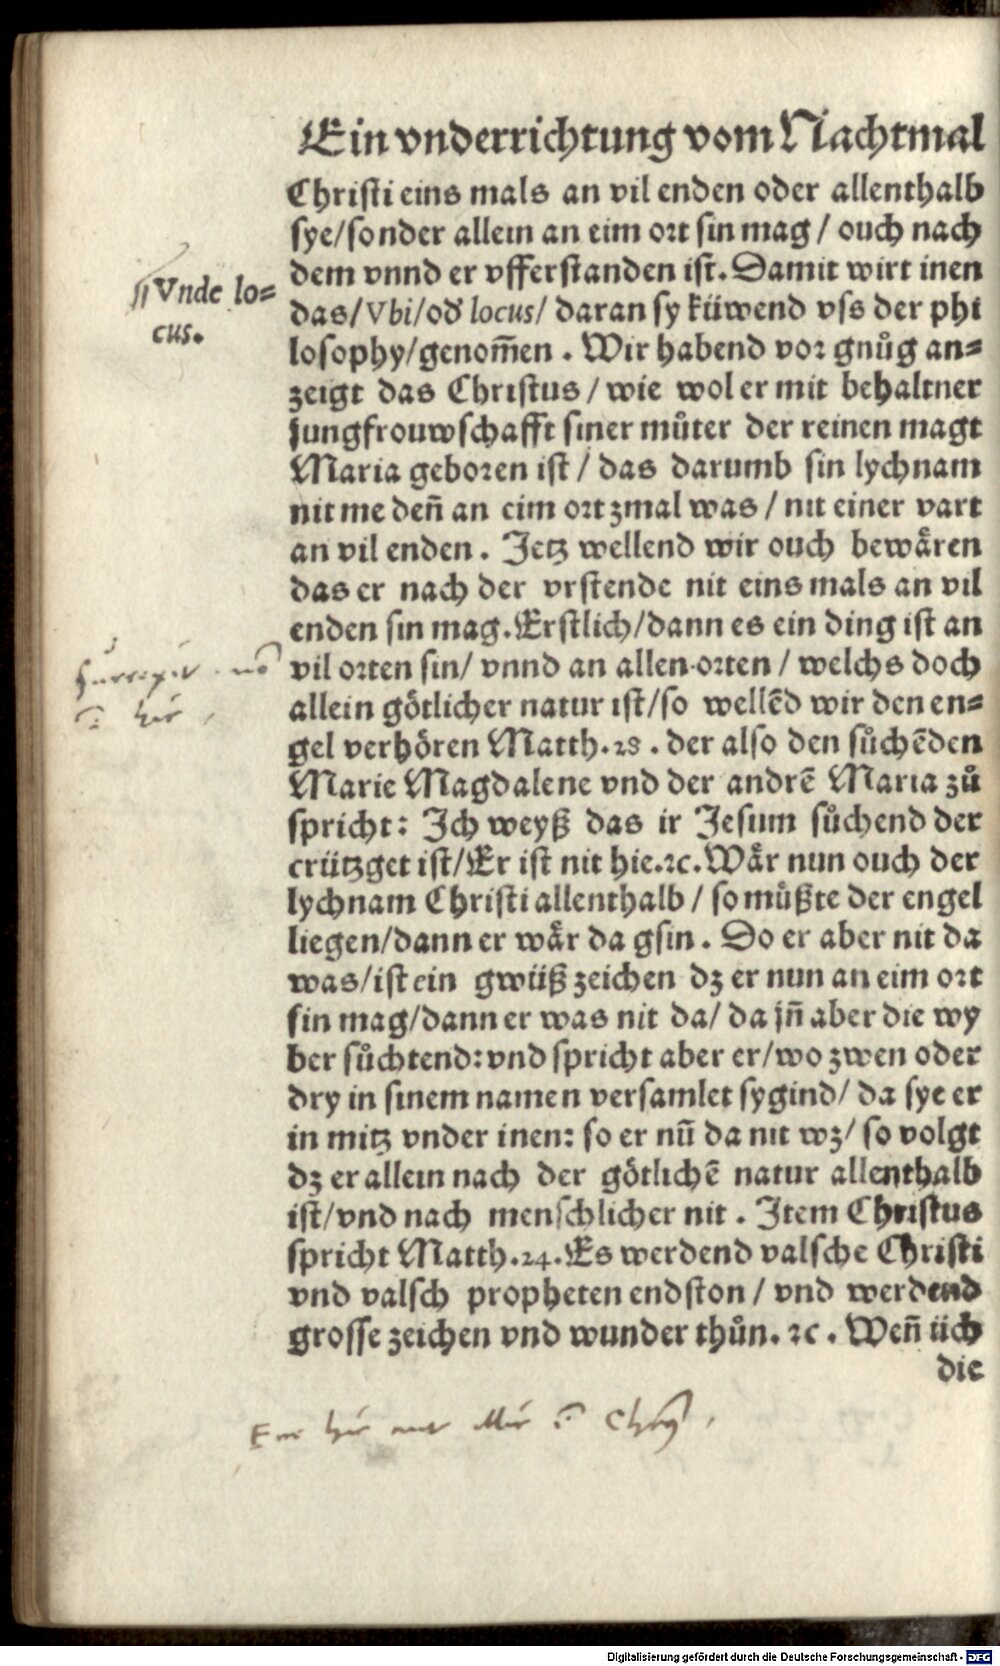 Ein vnderrichtung vom Nachtmal
Christi eins mals an vil enden oder allenthalb
sye/sonder allein an eim ort sin mag / ouch nach
dem vnnd er vfferstanden ist. Damit wirt inen
Vnde lo=
cus.
das/Vbi/oď locus/ daran sy küwend vss der phi
losophy/genom̃en . Wir habend vor gnůg an=
zeigt das Christus / wie wol er mit behaltner
jungfrouwschafft siner můter der reinen magt
Maria geboren ist / das darumb sin lychnam
nit me deñ an eim ort zmal was / nit einer vart
an vil enden . Jetz wellend wir ouch bewåren
das er nach der vrstende nit eins mals an vil
enden sin mag. Erstlich/dann es ein ding ist an
vil orten sin/ vnnd an allen orten / welchs doch
allein götlicher natur ist/so wellẽd wir den en=
gel verhören Matth.28. der also den sůchẽden
Marie Magdalene vnd der andrẽ Maria zů
spricht: Ich weyß das ir Jesum sůchend der
crützget ist/Er ist nit hie.ꝛc. Wår nun ouch der
lychnam Christi allenthalb / so můßte der engel
liegen/dann er wår da gsin . Do er aber nit da
was/ist ein gwüß zeichen dz er nun an eim ort
sin mag/dann er was nit da/ da jñ aber die wy
ber sůchtend: vnd spricht aber er/wo zwen oder
dry in sinem namen versamlet sygind/ da sye er
in mitz vnder inen: so er nũ da nit wz/ so volgt
dz er allein nach der götlichẽ natur allenthalb
ist/vnd nach menschlicher nit . Item Christus
spricht Matth.24. Es werdend valsche Christi
vnd valsch propheten endston / vnd werdend
grosse zeichen vnd wunder thůn. ꝛc . Weñ üch
die
Digitalisierung gefördert durch die Deutsche Forschungsgemeinschaft - DFG